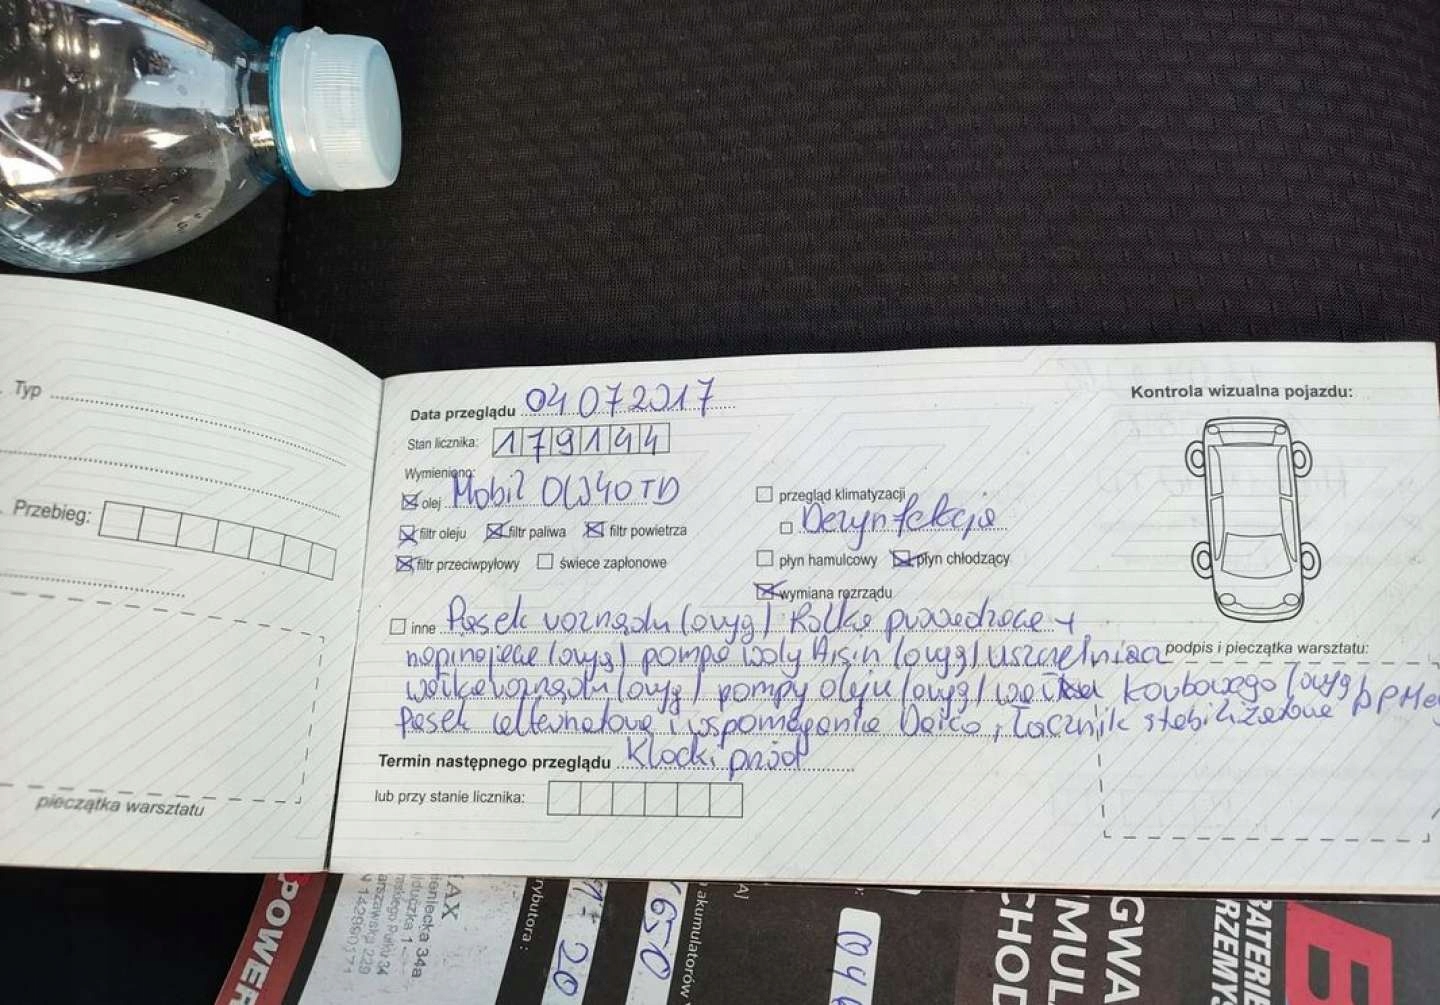 Typ
Przebieg:
pieczątka warsztatu
Data przeglądu 04 07 2017
Stan licznika: 179144
Wymieniono:
olej Mobil 0W40 TD
filtr oleju filtr paliwa filtr powietrza
filtr przeciwpyłowy świece zapłonowe
przegląd klimatyzacji
Dezynfekcja
płyn hamulcowy płyn chłodzący
wymiana rozrządu
inne Pasek rozrządu (oryg) Rolka prowadząca +
napinająca (oryg) pompa wody Aisin (oryg) uszczelniacz
wałka rozrządu (oryg) pompy oleju (oryg) korbowego (oryg)
Pasek alternatora i wspomagania Dayco, Łącznik stabilizatora
Klocki przód
Termin następnego przeglądu
lub przy stanie licznika:
Kontrola wizualna pojazdu:
podpis i pieczątka warsztatu:
POWER
AX
34a
rybutora:
20
650
akumulatorów
04
CHOD
MUL
GWA
RZEMY
BATERIE
B